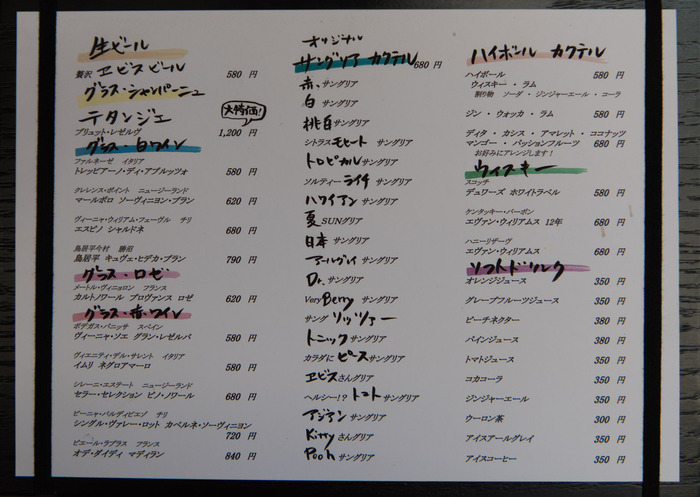 生ビール
贅沢 ヱビスビール 580 円
グラス・シャンパーニュ
テタンジェ
大特価!
ブリュット・レゼルヴ 1,200 円
グラス・白ワイン
ファルネーゼ イタリア
トレッビアーノ・ディ・アブルッツォ 580 円
クレレンス・ポイント ニュージーランド
マールボロ ソーヴィニヨン・ブラン 620 円
ヴィーニャ・ウィリアム・フェーヴル チリ
エスピノ シャルドネ 680 円
鳥居平今村 勝沼
鳥居平 キュヴェ・ヒデカ・ブラン 790 円
グラス・ロゼ
メートル・ヴィニョロン フランス
カルトノワール プロヴァンス ロゼ 620 円
グラス・赤・ワイン
ボデガス・パニッサ スペイン
ヴィーニャ・ソエ グラン・レゼルバ 580 円
ヴィエニティ・デル・サレント イタリア
イムリ ネグロアマーロ 580 円
シレーニ・エステート ニュージーランド
セラー・セレクション ピノ・ノワール 680 円
ビーニャ・バルディビエソ チリ
シングル・ヴァレー・ロット カベルネ・ソーヴィニヨン
720 円
ピエール・ラプラス フランス
オデ・ダイディ マディラン 840 円
オリジナル
サングリア カクテル 680 円
赤、サングリア
白 サングリア
桃白サングリア
シトラスモヒート サングリア
トロピカル サングリア
ソルティーライチ サングリア
ハワイアン サングリア
夏 SUNグリア
日本 サングリア
アールグレイ サングリア
Dr. サングリア
Very Berry サングリア
サングリッツァー
トニック サングリア
カラダに ピース サングリア
ヱビスさんグリア
ヘルシー!? トマト サングリア
アジアン サングリア
Kitty さんグリア
Pooh サングリア
ハイボール カクテル
ハイボール 580 円
ウィスキー ・ ラム
割り物 ソーダ ・ ジンジャーエール ・ コーラ
ジン ・ ウォッカ ・ ラム 580 円
ディタ ・ カシス ・ アマレット ・ ココナッツ
マンゴー ・ パッションフルーツ 680 円
お好みにアレンジします!
ウィスキー
スコッチ
デュワーズ ホワイトラベル 580 円
ケンタッキー・バーボン
エヴァン・ウィリアムス 12年 680 円
ハニーリザーヴ
エヴァン・ウィリアムス 680 円
ソフトドリンク
オレンジジュース 350 円
グレープフルーツジュース 350 円
ピーチネクター 380 円
パインジュース 380 円
トマトジュース 350 円
コカコーラ 350 円
ジンジャーエール 350 円
ウーロン茶 300 円
アイスアールグレイ 350 円
アイスコーヒー 350 円